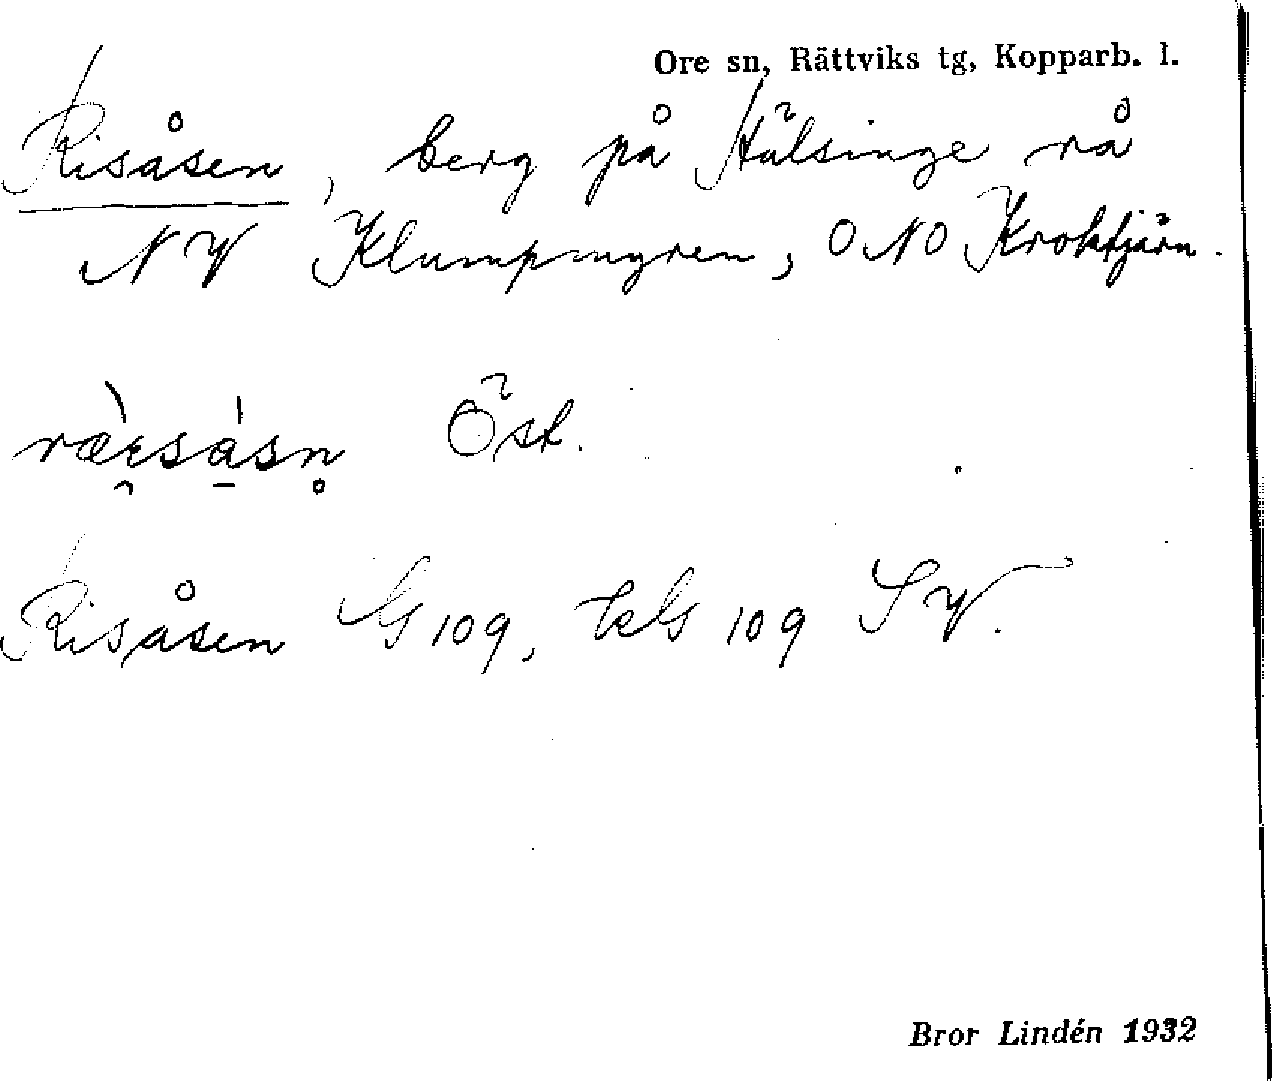 Ore sn, Rättviks tg, Kopparb. l.
Risåsen, berg på Hälsinge rå
NV Klumpmyren, ONO Kroktjärn.
Öst.
Risåsen G 109, kG 109 SV.
Bror Lindén 1932